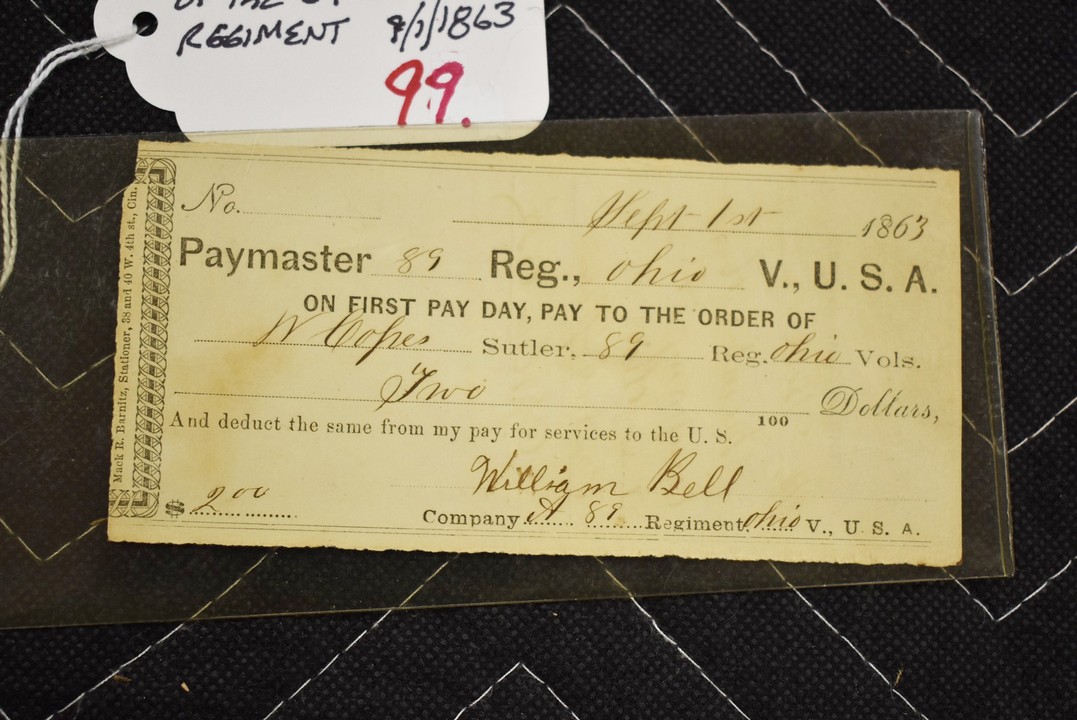 REGIMENT 9/1/1863
99.
No. Sept 1st 1863
Paymaster 89 Reg., Ohio V., U. S. A.
ON FIRST PAY DAY, PAY TO THE ORDER OF
W Copes Sutler, 89 Reg. Ohio Vols.
Two 100 Dollars,
And deduct the same from my pay for services to the U. S.
William Bell
$ 2.00
Company A 89 Regiment, Ohio V., U. S. A.
Mack R. Barnitz, Stationer, 38 and 40 W. 4th st., Cin.